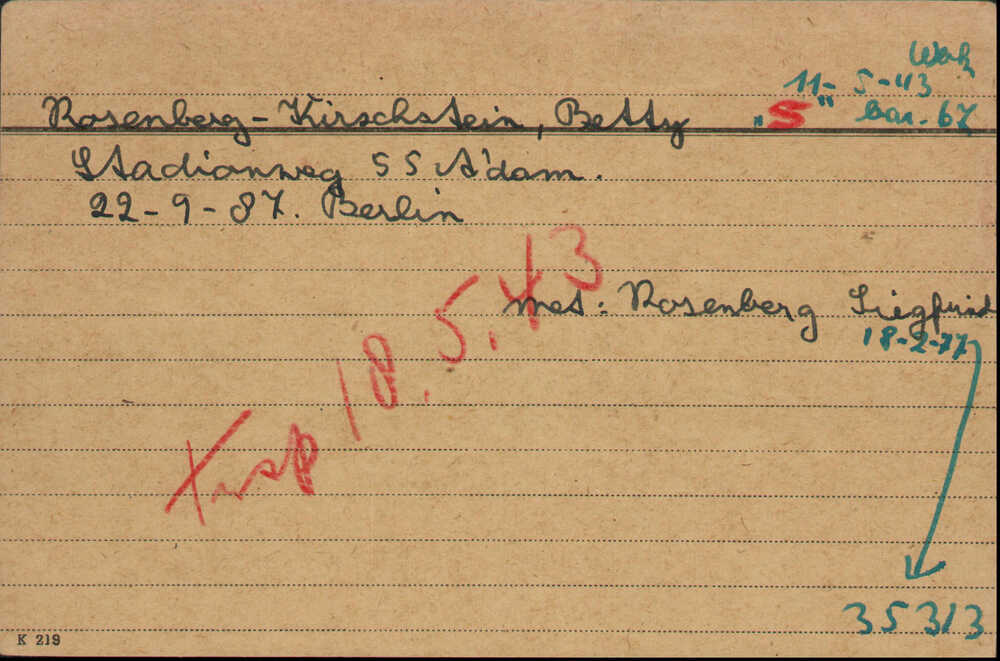 Werk
11-5-43
Rosenberg-Kirschstein, Betty "S" bar. 67
Stadionweg 55 A'dam.
22-9-87. Berlin
met: Rosenberg Siegfried
18-2-77
Trsp 18.5.43
35313
K 219